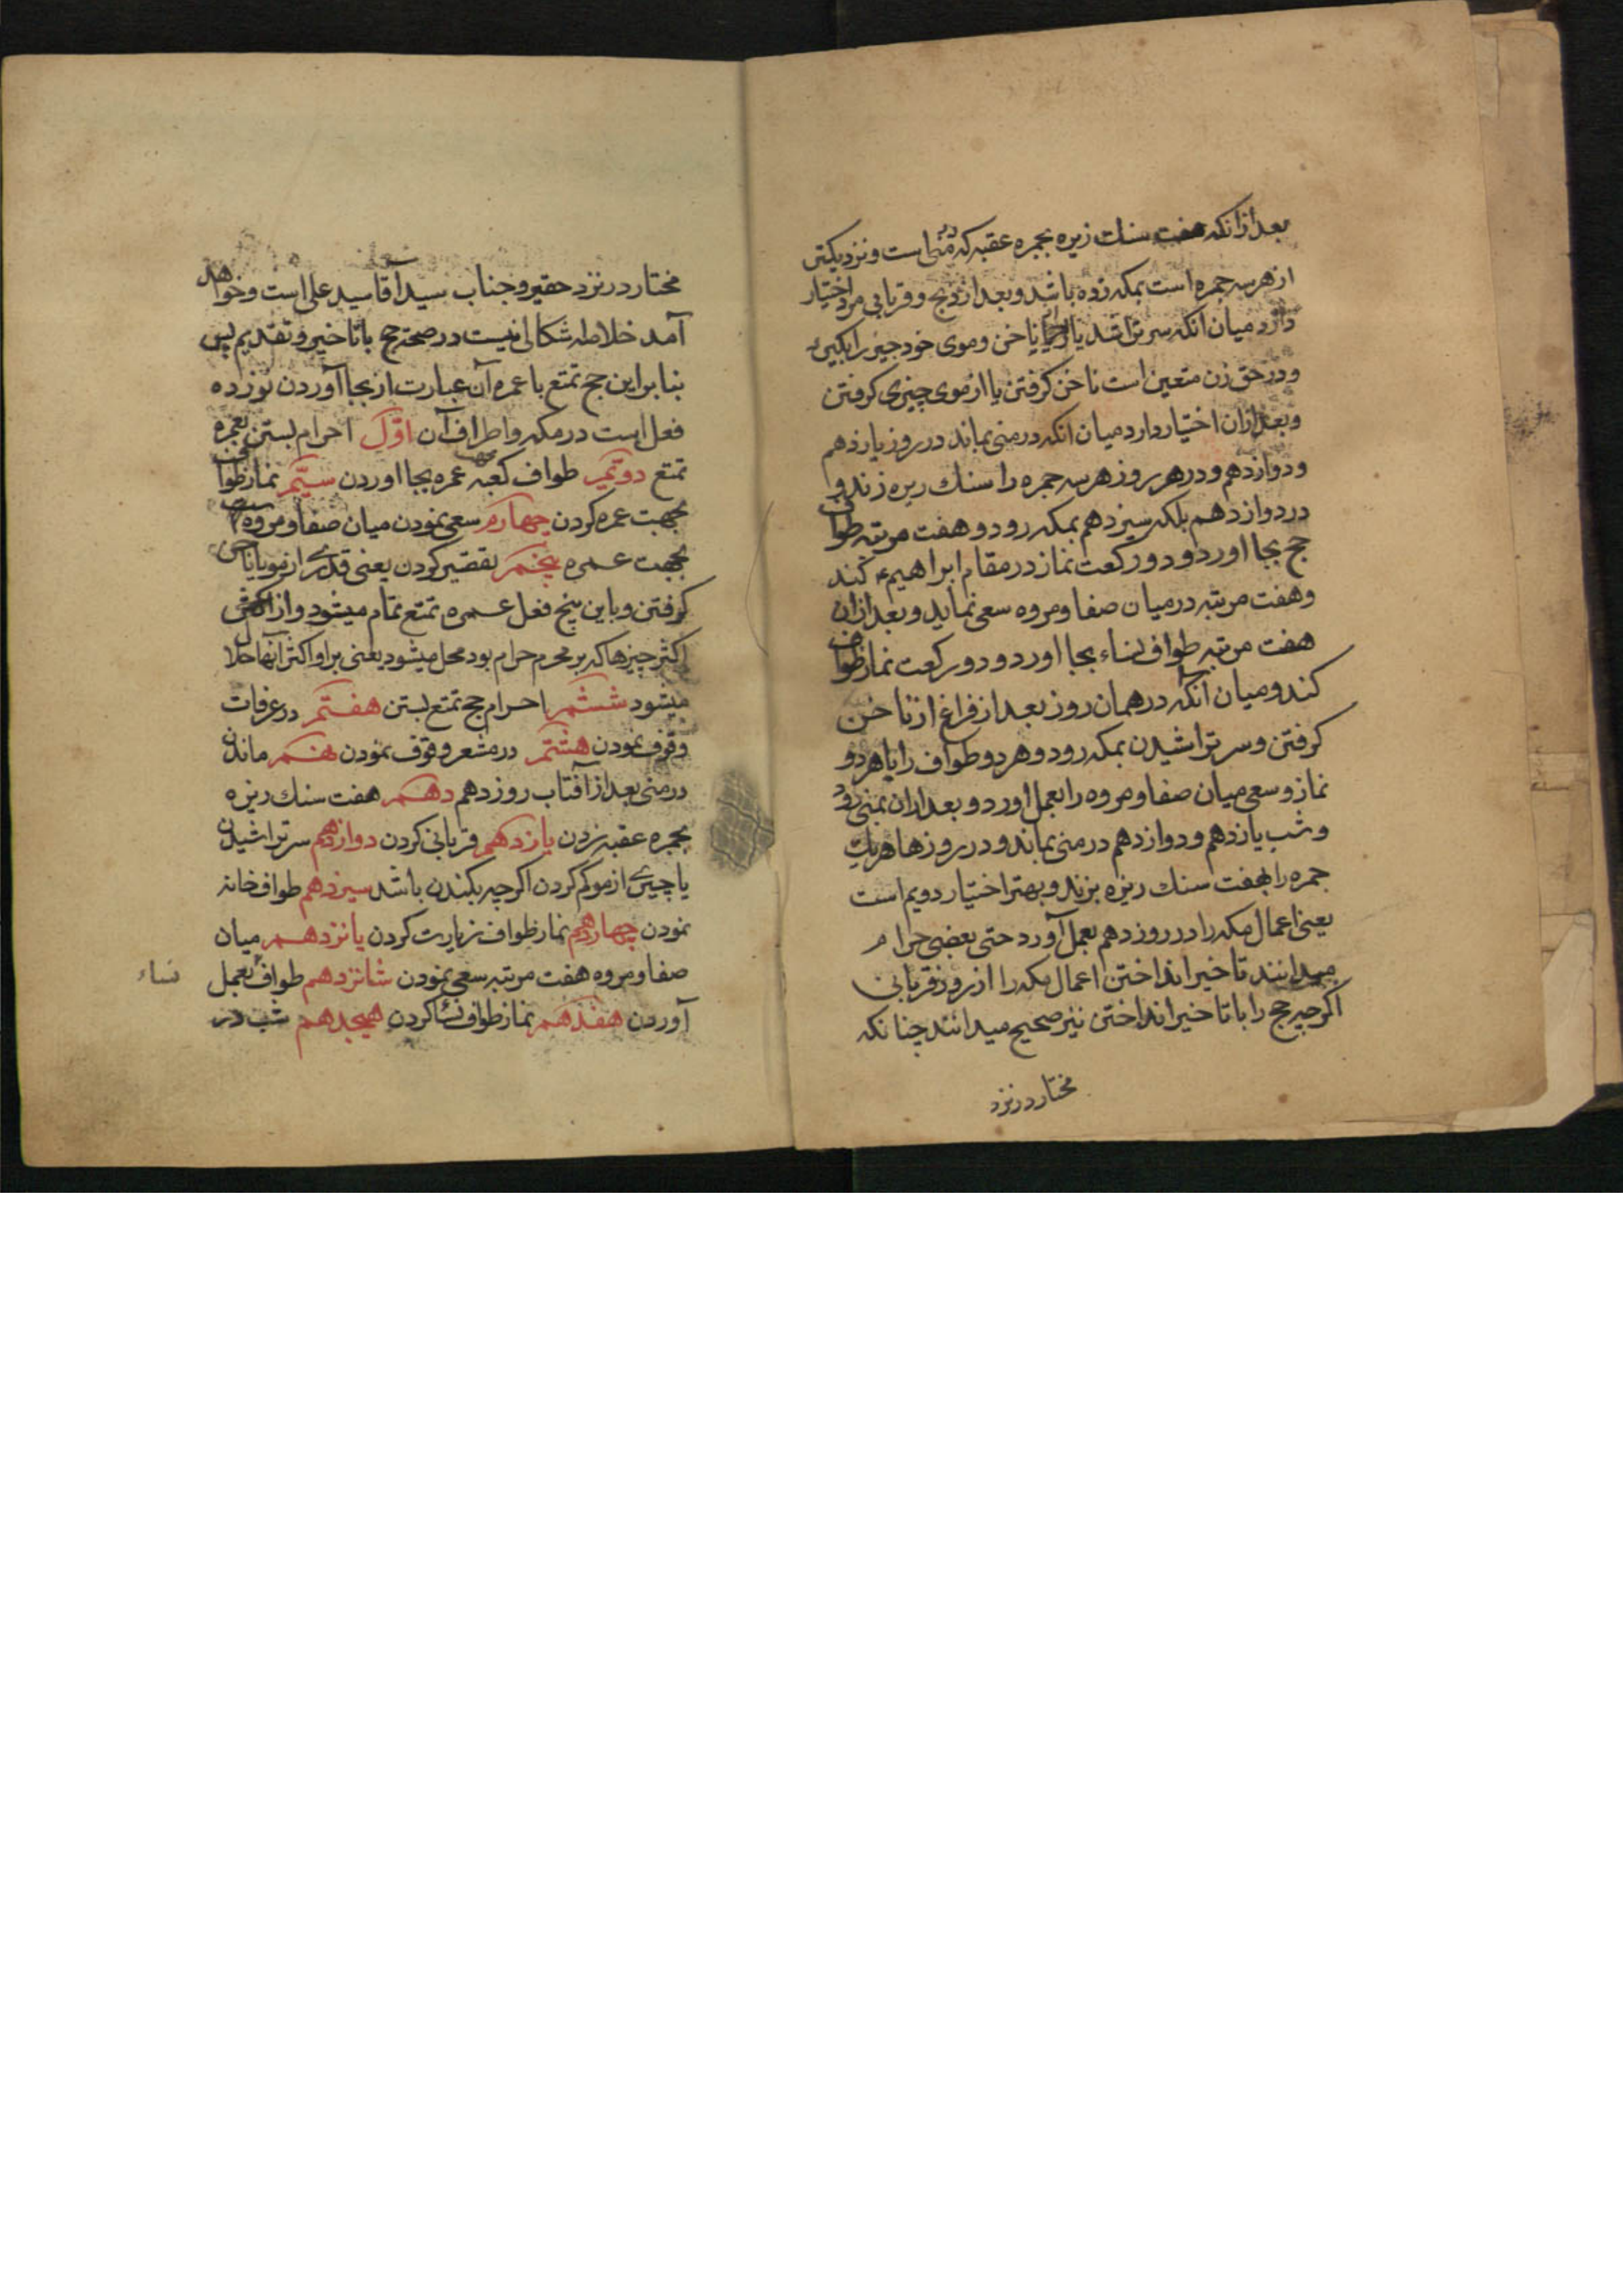 بعد از آنکه هفت سنك ریزه بجمره عقبه که در منی است و نزدیکتر
از هر سه جمره است بمکه زده باشد و بعد از ذبح و قربانی مرد اختیار
دارد میان آنکه سر تراشد یا از ناخن و موی خود چیز را بگیرد
و در حق زن متعین است ناخن گرفتن یا از موی چیزی گرفتن
و بعد از ان اختیار دارد میان انکه در منی بماند در روز یازدهم
و دوازدهم و در هر روز هر سه جمره را سنك ریزه زند و
در دوازدهم بلکه سیزدهم بمکه رود و هفت مرتبه طواف
حج بجا اورد و دو رکعت نماز در مقام ابراهیم ع کند
و هفت مرتبه در میان صفا و مروه سعی نماید و بعد ازان
هفت مرتبه طواف نساء بجا اورد و دو رکعت نماز طواف
کند و میان آنکه در همان روز بعد از فراغ از ناخن
گرفتن و سر تراشیدن بمکه رود و هر دو طواف را با هر دو
نماز و سعی میان صفا و مروه را بعمل اورد و بعد ازان بمنی رود
و شب یازدهم و دوازدهم در منی بماند و در روزها هر یك
جمره را بهفت سنك ریزه بزند و بهتر اختیار دویم است
یعنی اعمال مکه را در روز دهم بعمل آورد حتی بعضی حرام
میدانند تاخیر انداختن اعمال مکه را از روز قربانی
اکرچه حج را با تاخیر انداختن نیز صحیح میدانند چنانکه
مختار در نزد
مختار در نزد حقیر و جناب سید آقا سید علی است و خواهد
آمد خلاصه اشکالی نیست در صحت حج با تاخیر و تقدیم پس
بنا بر این حج تمتع با عمره آن عبارت از بجا آوردن نوزده
فعل است در مکه و اطراف آن اوّل احرام بستن بعمره
تمتع دویّم طواف کعبه بجهت عمره بجا اوردن سیّم نماز طواف
بجهت عمره کردن چهارم سعی نمودن میان صفا و مروه
بجهت عمره پنجم تقصیر کردن یعنی قدری از مو یا ناخن
گرفتن و باین پنج فعل عمره تمتع تمام میشود و از
اکثر چیزها که بر محرم حرام بود محل میشود یعنی بر او اکثر آنها حلال
میشود ششم احرام حج تمتع بستن هفتم در عرفات
وقوف نمودن هشتم در مشعر وقوف نمودن نهم ماندن
در منی بعد از آفتاب روز دهم دهم هفت سنك ریزه
بجمره عقبه زدن یازدهم قربانی کردن دوازدهم سر تراشیدن
یا چیزی از مو کم کردن اکرچه بکندن باشد سیزدهم طواف خانه
نمودن چهاردهم نماز طواف زیارت کردن پانزدهم میان
صفا و مروه هفت مرتبه سعی نمودن شانزدهم طواف بعمل
نساء
آوردن هفدهم نماز طواف نساء کردن هیجدهم شب در